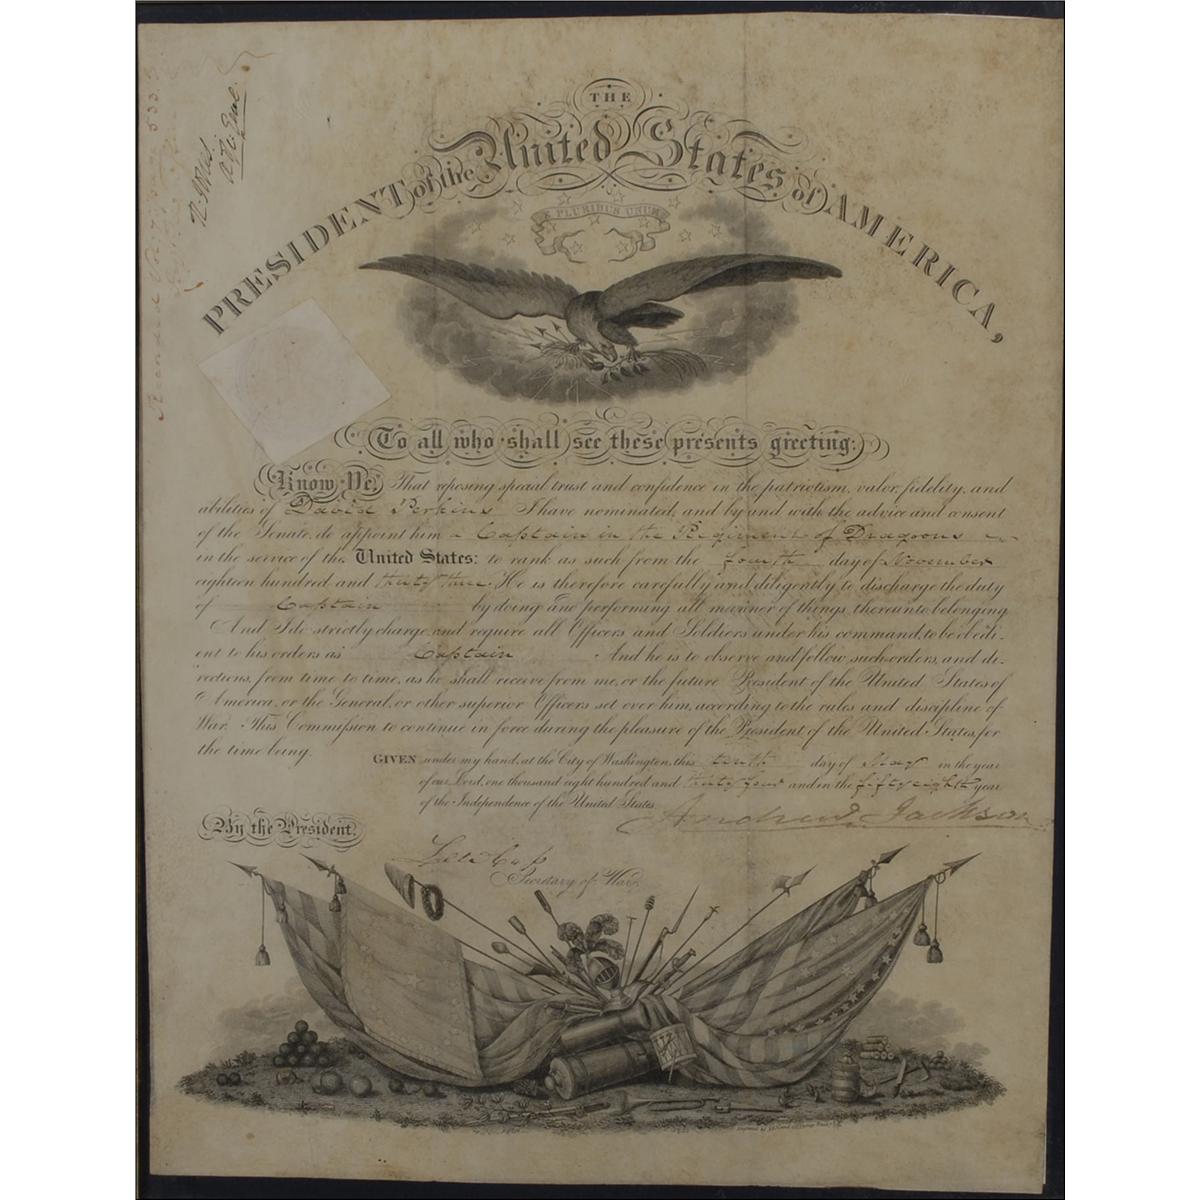 THE
PRESIDENT of the United States of AMERICA,
E PLURIBUS UNUM
To all who shall see these presents greeting:
Know Ye, That reposing special trust and confidence in the patriotism, valor, fidelity, and
abilities of David Perkins I have nominated, and by and with the advice and consent
of the Senate, do appoint him a Captain in the Regiment of Dragoons
in the service of the United States: to rank as such from the fourth day of November
eighteen hundred and thirty three. He is therefore carefully and diligently to discharge the duty
of Captain by doing and performing all manner of things thereunto belonging.
And I do strictly charge, and require all Officers and Soldiers under his command, to be obedi-
ent to his orders as Captain And he is to observe and follow such orders, and di-
rections, from time to time, as he shall receive from me, or the future President of the United States of
America, or the General, or other superior Officers set over him, according to the rules and discipline of
War. This Commission to continue in force during the pleasure of the President of the United States, for
the time being.
GIVEN under my hand, at the City of Washington, this tenth day of May in the year
of our Lord, one thousand eight hundred and thirty four and in the fifty eighth year
of the Independence of the United States.
Andrew Jackson
By the President.
Lew Cass
Secretary of War.
Recorded
533
Engraved by